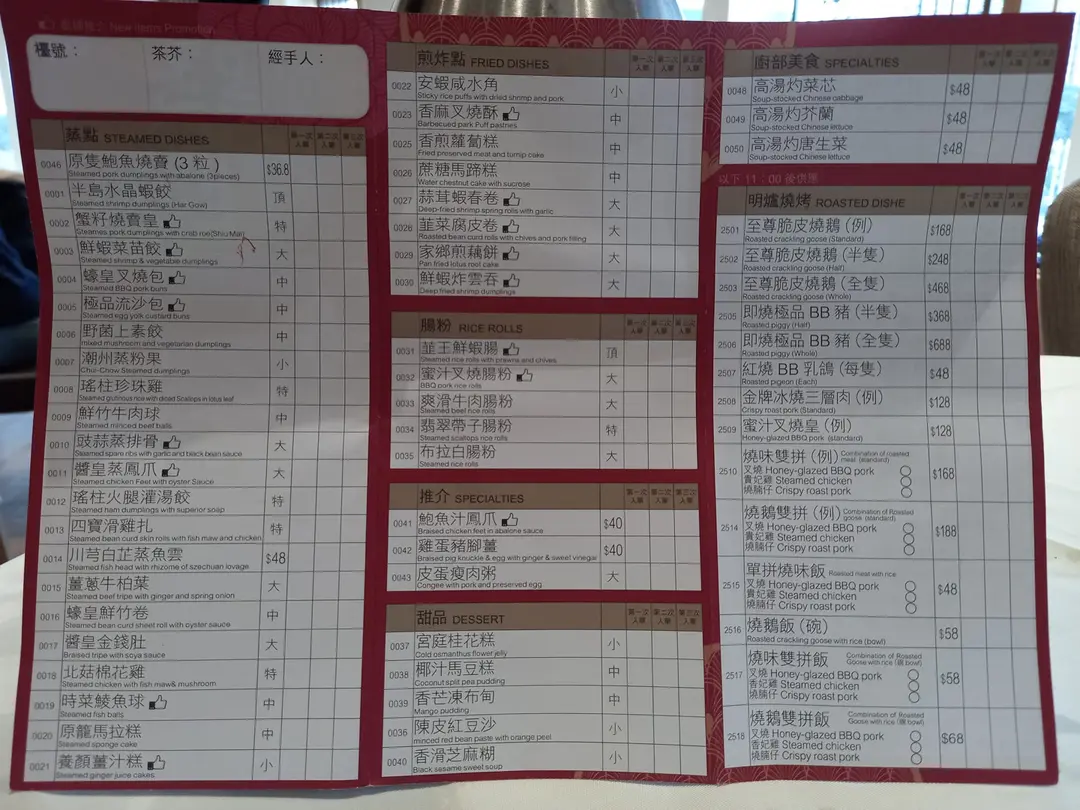 New Items Promotion
檯號：
茶芥：
經手人：
蒸點 STEAMED DISHES
第一次入單 第二次入單 第三次入單
0046 原隻鮑魚燒賣 (3 粒) $36.8
Steamed pork dumplings with abalone (3pieces)
0001 半島水晶蝦餃 頂
Steamed shrimp dumplings (Har Gow)
0002 蟹籽燒賣皇 特
Steames pork dumplings with crab roe(Shiu Mai)
0003 鮮蝦菜苗餃 大
Steamed shrimp & vegetable dumplings
0004 蠔皇叉燒包 中
Steamed BBQ pork buns
0005 極品流沙包 中
Steamed egg yolk custard buns
0006 野菌上素餃 中
mixed mushroom and vegetarian dumplings
0007 潮州蒸粉果 小
Chui-Chow Steamed dumplings
0008 瑤柱珍珠雞 特
Steamed glutinous rice with dried Scallops in lotus leaf
0009 鮮竹牛肉球 中
Steamed minced beef balls
0010 豉蒜蒸排骨 大
Steamed spare ribs with garlic and black bean sauce
0011 醬皇蒸鳳爪 大
Steamed chicken Feet with oyster Sauce
0012 瑤柱火腿灌湯餃 特
Steamed ham dumplings with superior soap
0013 四寶滑雞扎 特
Steamed bean curd skin rolls with fish maw and chicken
0014 川芎白芷蒸魚雲 $48
Steamed fish head with rhizome of szechuan lovage
0015 薑蔥牛柏葉 大
Steamed beef tripe with ginger and spring onion
0016 蠔皇鮮竹卷 中
Steamed bean curd sheet roll with oyster sauce
0017 醬皇金錢肚 大
Braised tripe with soya sauce
0018 北菇棉花雞 特
Steamed chicken with fish maw& mushroom
0019 時菜鯪魚球 中
Steamed fish balls
0020 原籠馬拉糕 中
Steamed sponge cake
0021 養顏薑汁糕 小
Steamed ginger juice cakes
煎炸點 FRIED DISHES
第一次入單 第二次入單 第三次入單
0022 安蝦咸水角 小
Sticky rice puffs with dried shrimp and pork
0023 香麻叉燒酥 中
Barbecued park Puff pastries
0025 香煎蘿蔔糕 中
Fried preserved meat and turnip cake
0026 蔗糖馬蹄糕 中
Water chestnut cake with sucrose
0027 蒜茸蝦春卷 大
Deep-fried shrimp spring rolls with garlic
0028 韮菜腐皮卷 大
Roasted bean curd rolls with chives and pork filling
0029 家鄉煎藕餅 大
Pan fried lotus root cake
0030 鮮蝦炸雲吞 大
Deep fried shrimp dumplings
腸粉 RICE ROLLS
第一次入單 第二次入單 第三次入單
0031 韮王鮮蝦腸 頂
Steamed rice rolls with prawns and chives
0032 蜜汁叉燒腸粉 大
BBQ pork rice rolls
0033 爽滑牛肉腸粉 大
Steamed beef rice rolls
0034 翡翠帶子腸粉 特
Steamed scallops rice rolls
0035 布拉白腸粉 大
Steamed rice rolls
推介 SPECIALTIES
第一次入單 第二次入單 第三次入單
0041 鮑魚汁鳳爪 $40
Braised chicken feet in abalone sauce
0042 雞蛋豬腳薑 $40
Braised pig knuckle & egg with ginger & sweet vinegar
0043 皮蛋瘦肉粥 大
Congee with pork and preserved egg
甜品 DESSERT
第一次入單 第二次入單 第三次入單
0037 宮庭桂花糕 小
Cold osmanthus flower jelly
0038 椰汁馬豆糕 中
Coconut split pea pudding
0039 香芒凍布甸 中
Mango pudding
0036 陳皮紅豆沙 小
minced red bean paste with orange peel
0040 香滑芝麻糊 小
Black sesame sweet soup
廚部美食 SPECIALTIES
第一次入單 第二次入單 第三次入單
0048 高湯灼菜芯 $48
Soup-stocked Chinese cabbage
0049 高湯灼芥蘭 $48
Soup-stocked Chinese lettuce
0050 高湯灼唐生菜 $48
Soup-stocked Chinese lettuce
以下 11：00 後供應
明爐燒烤 ROASTED DISHE
第一次入單 第二次入單 第三次入單
2501 至尊脆皮燒鵝 (例) $168
Roasted crackling goose (Standard)
2502 至尊脆皮燒鵝 (半隻) $248
Roasted crackling goose (Half)
2503 至尊脆皮燒鵝 (全隻) $468
Roasted crackling goose (Whole)
2505 即燒極品 BB 豬 (半隻) $368
Roasted piggy (Half)
2506 即燒極品 BB 豬 (全隻) $688
Roasted piggy (Whole)
2507 紅燒 BB 乳鴿 (每隻) $48
Roasted pigeon (Each)
2508 金牌冰燒三層肉 (例) $128
Crispy roast pork (Standard)
2509 蜜汁叉燒皇 (例) $128
Honey-glazed BBQ pork (standard)
2510 燒味雙拼 (例) Combination of roasted meat (standard) $168
叉燒 Honey-glazed BBQ pork
貴妃雞 Steamed chicken
燒腩仔 Crispy roast pork
2514 燒鵝雙拼 (例) Combination of Roasted goose (standard) $188
叉燒 Honey-glazed BBQ pork
貴妃雞 Steamed chicken
燒腩仔 Crispy roast pork
2515 單拼燒味飯 Roasted meat with rice $48
叉燒 Honey-glazed BBQ pork
貴妃雞 Steamed chicken
燒腩仔 Crispy roast pork
2516 燒鵝飯 (碗) $58
Roasted crackling goose with rice (bowl)
2517 燒味雙拼飯 Combination of Roasted Goose with rice (碗 bowl) $58
叉燒 Honey-glazed BBQ pork
香妃雞 Steamed chicken
燒腩仔 Crispy roast pork
2518 燒鵝雙拼飯 Combination of Roasted Goose with rice (碗 bowl) $68
叉燒 Honey-glazed BBQ pork
香妃雞 Steamed chicken
燒腩仔 Crispy roast pork